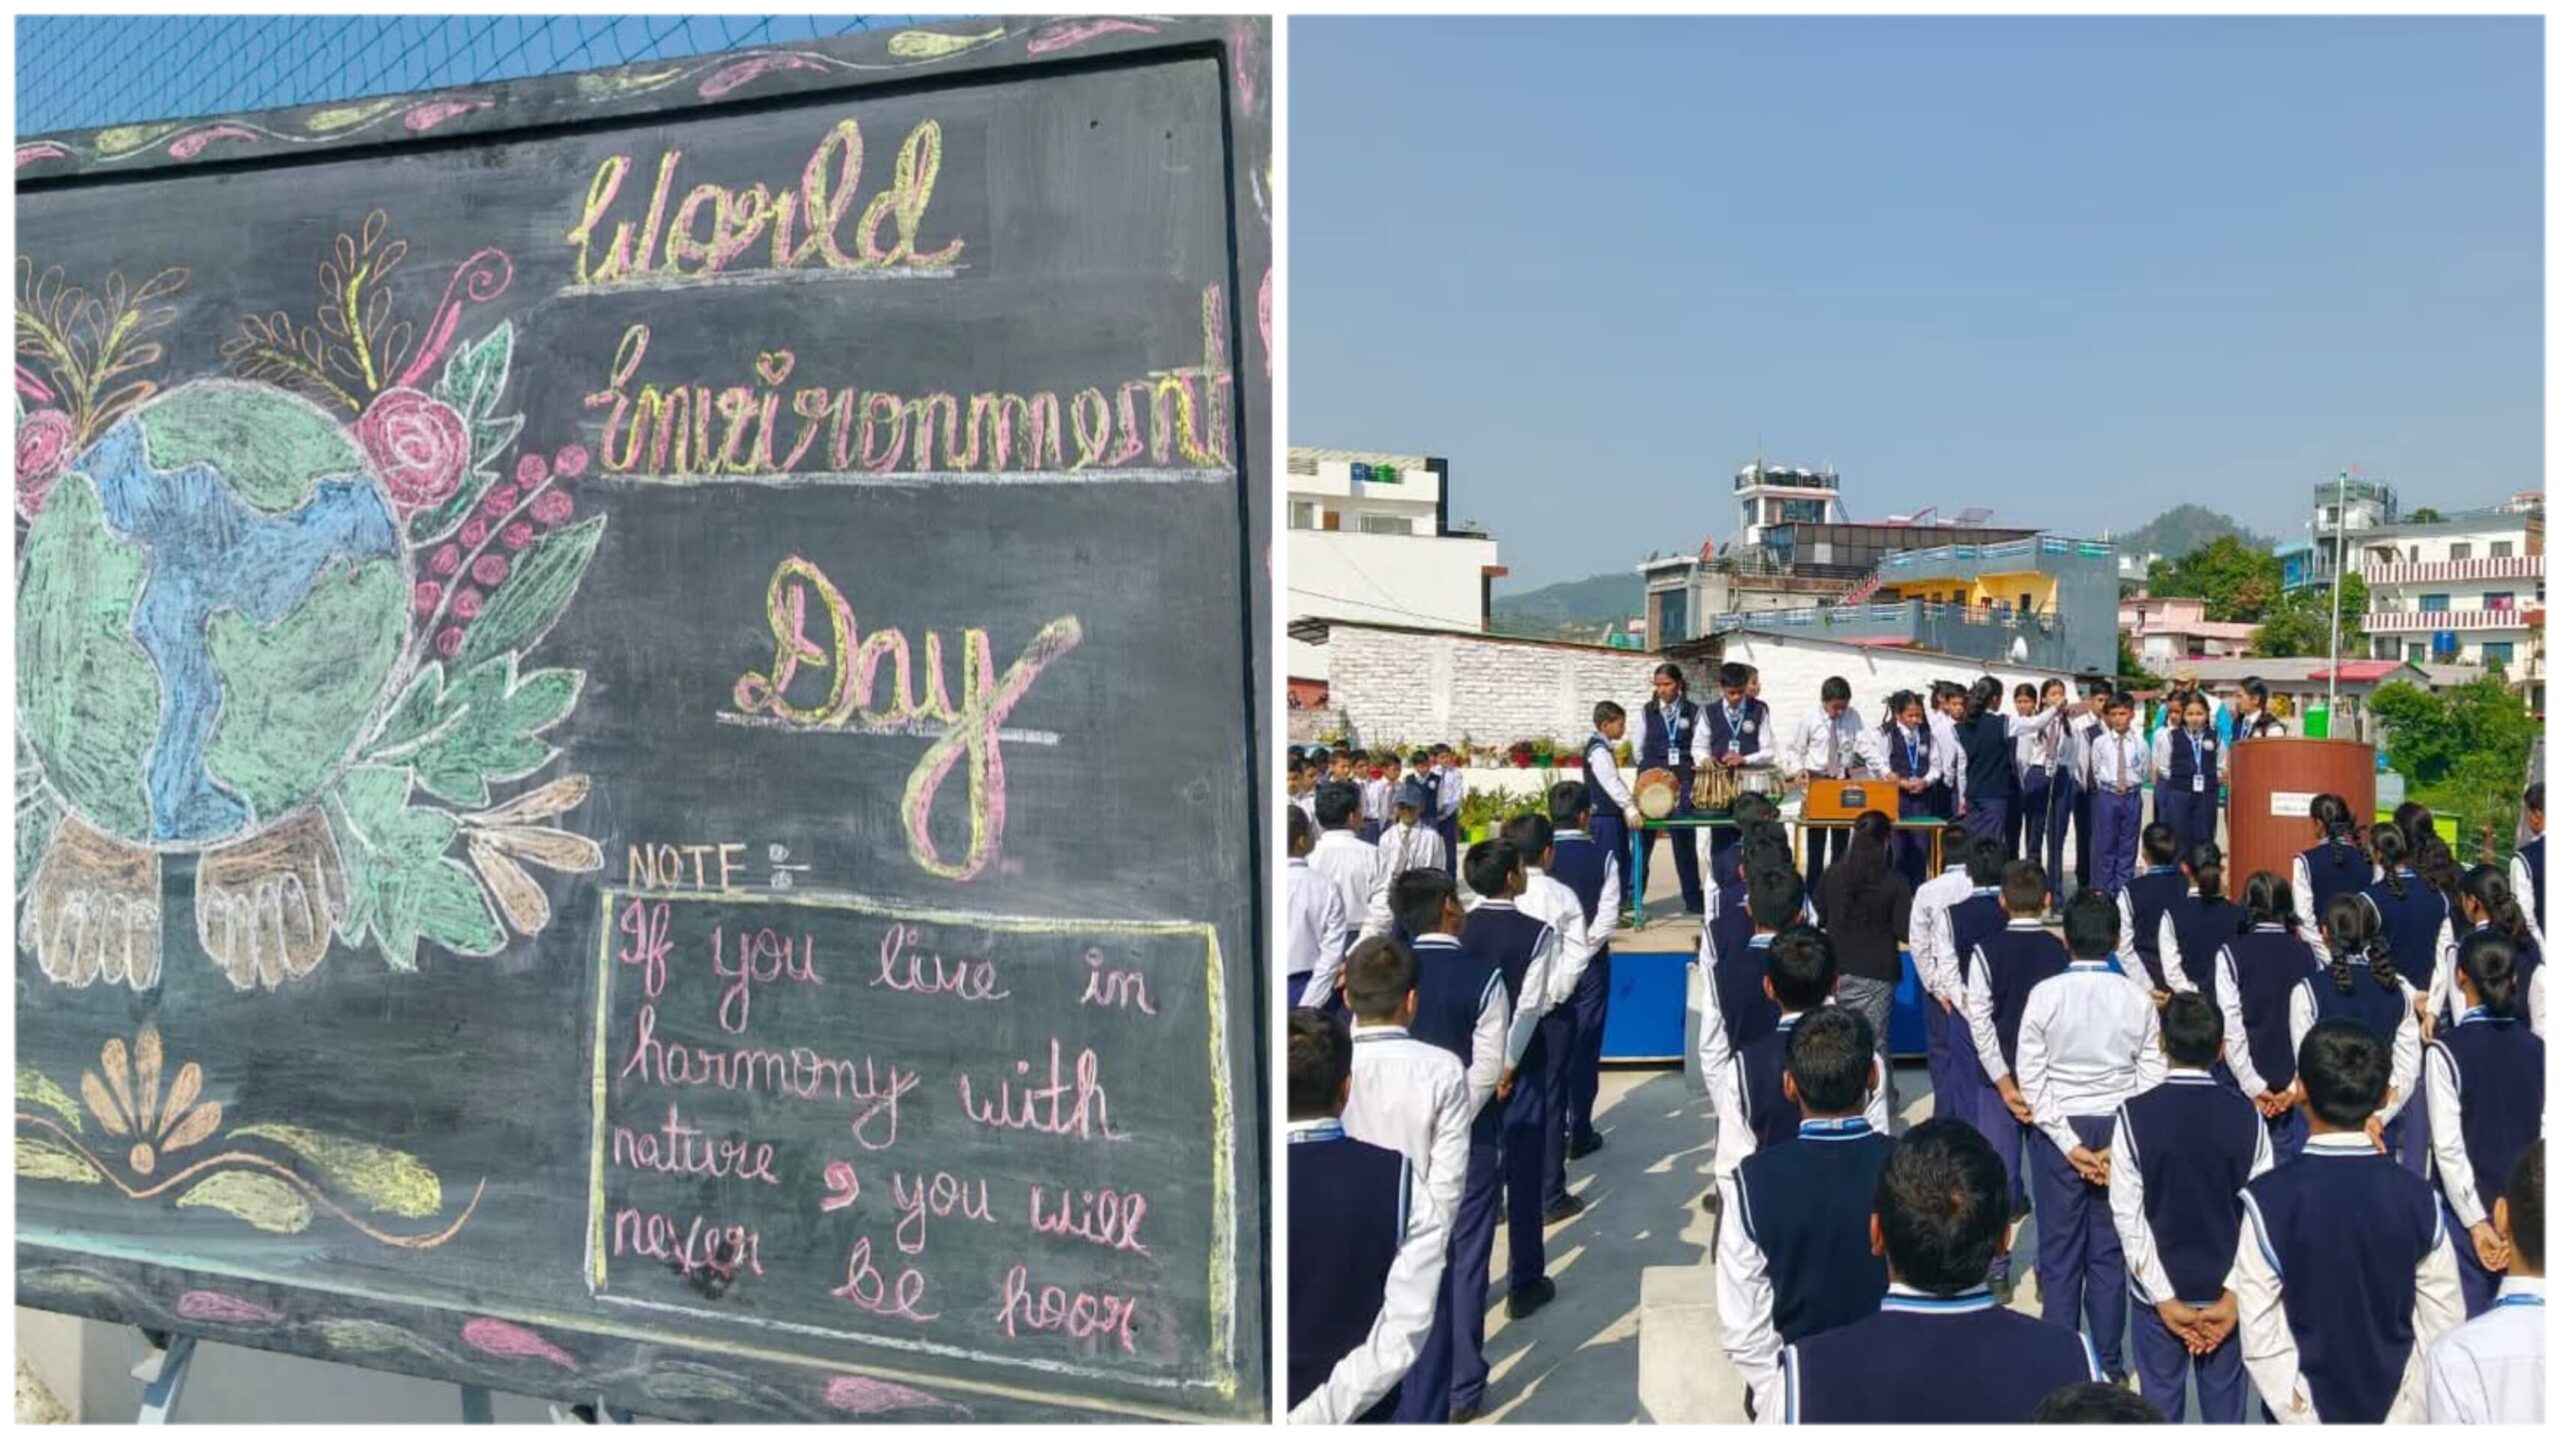 World
Environment
Day
NOTE :-
If you live in
harmony with
nature , you will
never be poor